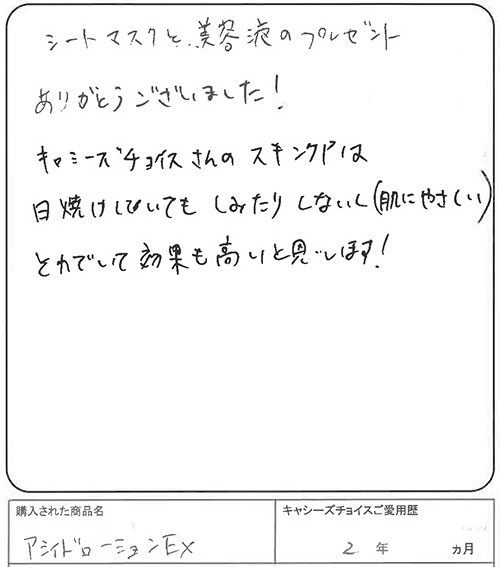 シートマスクと美容液のプレゼント
ありがとうございました!
キャシーズチョイスさんのスキンケアは
日焼けしていてもしみたりしないし(肌にやさしい)
それでいて効果も高いと思います!
購入された商品名
キャシーズチョイスご愛用歴
アシィドローションEX
2年 ヵ月